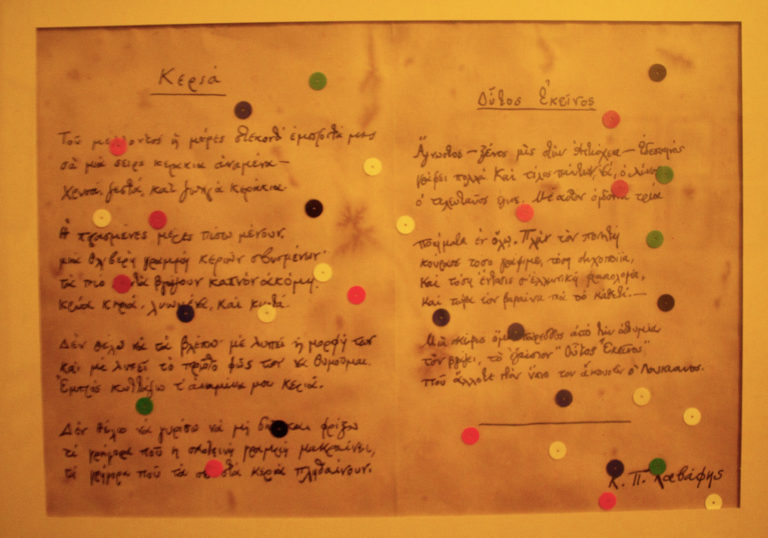 Κεριά
Τοῦ μέλλοντος ἡ μέρες στέκοντ' ἐμπροστά μας
σὰ μιὰ σειρὰ κεράκια ἀναμένα —
χρυσά, ζεστά, καὶ ζωηρὰ κεράκια.
Ἡ περασμένες μέρες πίσω μένουν,
μιὰ θλιβερὴ γραμμὴ κεριῶν σβυσμένων·
τὰ πιὸ κοντὰ βγάζουν καπνὸν ἀκόμη,
κρύα κεριά, λυωμένα, καὶ κυρτά.
Δὲν θέλω νὰ τὰ βλέπω· μὲ λυπεῖ ἡ μορφή των,
καὶ μὲ λυπεῖ τὸ πρῶτο φῶς των νὰ θυμοῦμαι.
Ἐμπρὸς κυττάζω τ' ἀναμένα μου κεριά.
Δὲν θέλω νὰ γυρίσω νὰ μὴ διῶ καὶ φρίξω
τί γρήγορα ποῦ ἡ σκοτεινὴ γραμμὴ μακραίνει,
τί γρήγορα ποῦ τὰ σβυστὰ κεριὰ πληθαίνουν.
Οὗτος Ἐκεῖνος
Ἄγνωστος — ξένος μὲς στὴν Ἀντιόχεια — Ἐδεσσηνὸς
γράφει πολλά. Καὶ τέλος πάντων, νά, ὁ λίνος
ὁ τελευταῖος ἔγινε. Μὲ αὐτὸν ὀγδόντα τρία
ποιήματα ἐν ὅλῳ. Πλὴν τὸν ποιητὴ
κούρασε τόσο γράψιμο, τόση στιχοποιία,
καὶ τόση ἔντασις σ' ἑλληνικὴ φρασιολογία,
καὶ τώρα τὸν βαραίνει πιὰ τὸ κάθε τί. —
Μιὰ σκέψις ὅμως παρευθὺς ἀπὸ τὴν ἀθυμία
τὸν βγάζει, τὸ ἐξαίσιον "Οὗτος Ἐκεῖνος"
ποῦ ἄλλοτε στὸν ὕπνο του ἄκουσεν ὁ Λουκιανός.
Κ. Π. Καβάφης